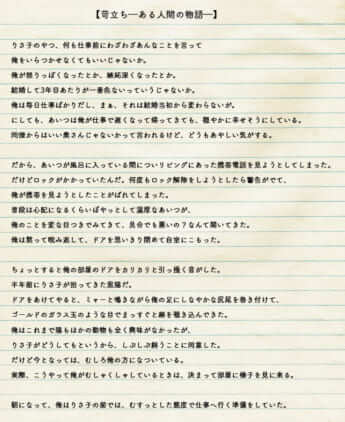 【苛立ち―ある人間の物語―】
りさ子のやつ、何も仕事前にわざわざあんなことを言って
俺をいらつかせなくてもいいじゃないか。
俺が怒りっぽくなったとか、嫉妬深くなったとか。
結婚して3年目あたりが一番危ないっていうじゃないか。
俺は毎日仕事ばかりだし、まぁ、それは結婚当初から変わらないが。
にしても、あいつは俺が仕事で遅くなって帰ってきても、穏やかに幸せそうにしている。
同僚からはいい奥さんじゃないかって言われるけど、どうもあやしい気がする。
だから、あいつが風呂に入っている間についリビングにあった携帯電話を見ようとしてしまった。
だけどロックがかかっていたんだ。何度もロック解除をしようとしたら警告がでて、
俺が携帯を見ようとしたことがばれてしまった。
普段は心配になるくらいぼやっとして温厚なあいつが、
俺のことを変な目つきでみてきて、具合でも悪いの？なんて聞いてきた。
俺は黙って睨み返して、ドアを思いきり閉めて自室にこもった。
ちょっとすると俺の部屋のドアをカリカリと引っ掻く音がした。
半年前にりさ子が拾ってきた黒猫だ。
ドアをあけてやると、ミャーと鳴きながら俺の足にしなやかな尻尾を巻き付けて、
ゴールドのガラス玉のような目でまっすぐと顔を覗き込んできた。
俺はこれまで猫もほかの動物も全く興味がなかったが、
りさ子がどうしてもというから、しぶしぶ飼うことに同意した。
だけど今となっては、むしろ俺の方になついている。
実際、こうやって俺がむしゃくしゃしているときは、決まって部屋に様子を見に来る。
朝になって、俺はりさ子の前では、むすっとした態度で仕事へ行く準備をしていた。